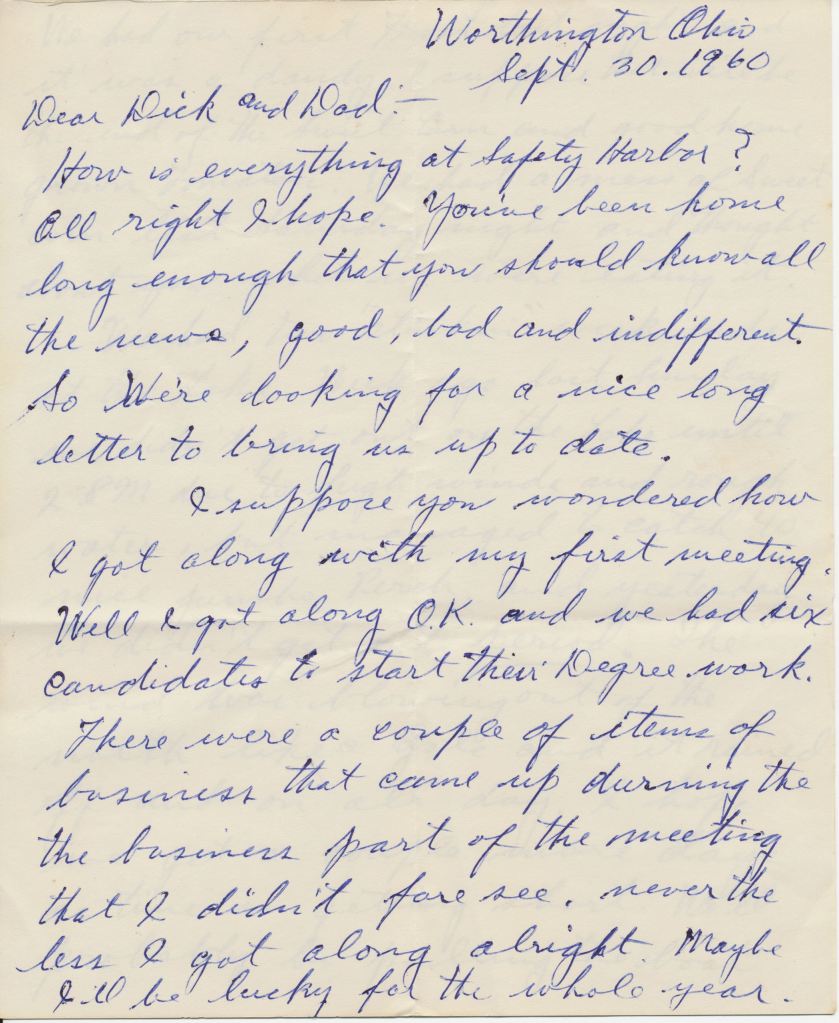 Worthington Ohio
Sept. 30. 1960
Dear Dick and Dad:—
How is everything at Safety Harbor?
All right I hope. You've been home
long enough that you should know all
the news, good, bad and indifferent.
So We're looking for a nice long
letter to bring us up to date.
I suppose you wondered how
I got along with my first meeting.
Well I got along O.K. and we had six
candidates to start their Degree work.
There were a couple of items of
business that came up durning the
the business part of the meeting
that I didn't fore see. never the
less I got along alright. Maybe
I'll be lucky for the whole year.